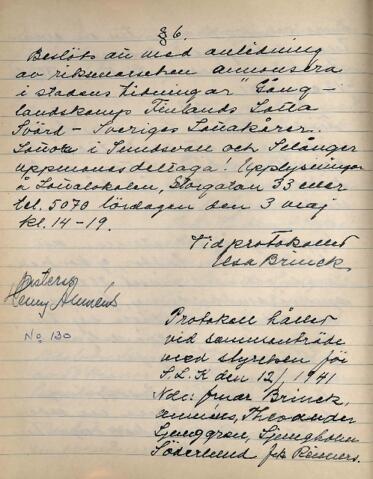 § 6.
Beslöts att med anledning
av riksmarschen annonsera
i stadens tidningar "Gång-
landskamp Finlands Lotta
Svärd - Sveriges Lottakårer.
Lottor i Sundsvall och Selånger
uppmanas deltaga! Upplysningar
å Lottalokalen, Storgatan 33 eller
tel. 5070 lördagen den 3 maj
kl. 14-19.
Vid protokollet
Elsa Brinck
Justeras
Henny Almén
No 130
Protokoll hållet
vid sammanträde
med styrelsen för
S.L.K den 12/ 1941
Närv: fruar Brinck,
Almén, Theander
Ljunggren, Ljungholm
Söderlund frk Reimers.